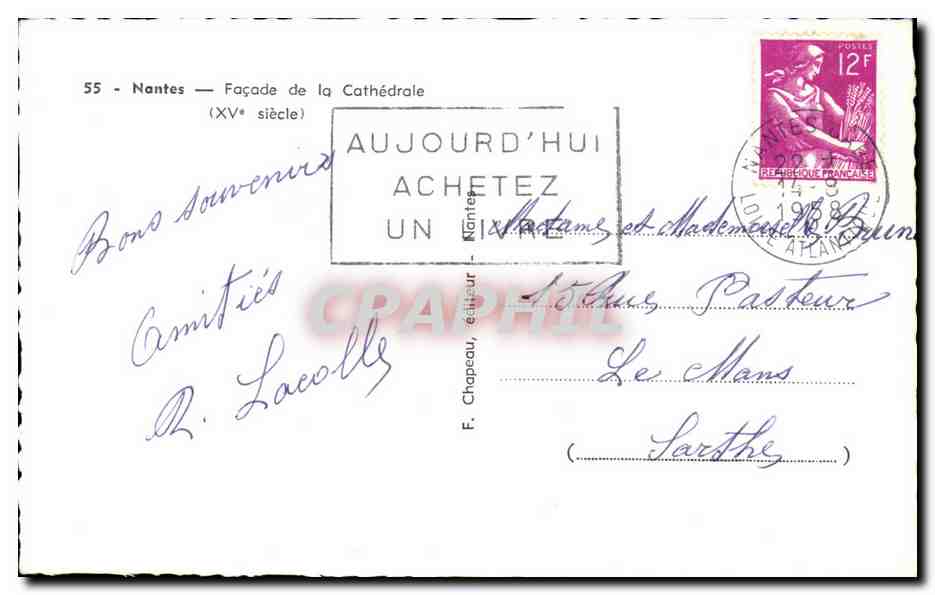 55 - Nantes — Façade de la Cathédrale
(XVe siècle)
AUJOURD'HUI
ACHETEZ
UN LIVRE
POSTES
12F
REPUBLIQUE FRANCAISE
NANTES
22
14-8
1958
LOIRE ATLANT
Bons souvenirs
Amitiés
R. Lacolle
F. Chapeau, éditeur - Nantes
Madame et Mademoiselle Brun
Rue Pasteur
Le Mans
(Sarthe)
CPAPHIL